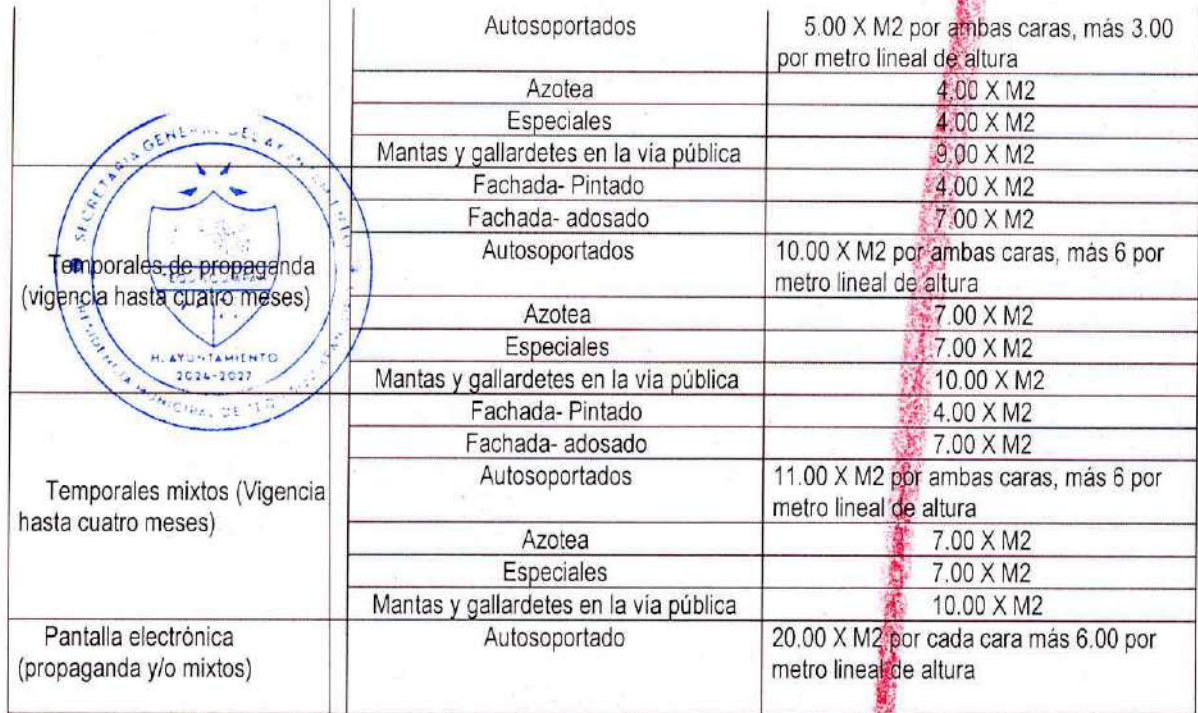 Autosoportados
5.00 X M2 por ambas caras, más 3.00
por metro lineal de altura
Azotea
4.00 X M2
Especiales
4.00 X M2
Mantas y gallardetes en la vía pública
9.00 X M2
Temporales de propaganda
(vigencia hasta cuatro meses)
Fachada- Pintado
4.00 X M2
Fachada- adosado
7.00 X M2
Autosoportados
10.00 X M2 por ambas caras, más 6 por
metro lineal de altura
Azotea
7.00 X M2
Especiales
7.00 X M2
Mantas y gallardetes en la vía pública
10.00 X M2
Temporales mixtos (Vigencia
hasta cuatro meses)
Fachada- Pintado
4.00 X M2
Fachada- adosado
7.00 X M2
Autosoportados
11.00 X M2 por ambas caras, más 6 por
metro lineal de altura
Azotea
7.00 X M2
Especiales
7.00 X M2
Mantas y gallardetes en la vía pública
10.00 X M2
Pantalla electrónica
(propaganda y/o mixtos)
Autosoportado
20.00 X M2 por cada cara más 6.00 por
metro lineal de altura
SECRETARIA GENERAL DEL AYUNTAMIENTO
H. AYUNTAMIENTO
2024-2027
PRESIDENCIA MUNICIPAL DE